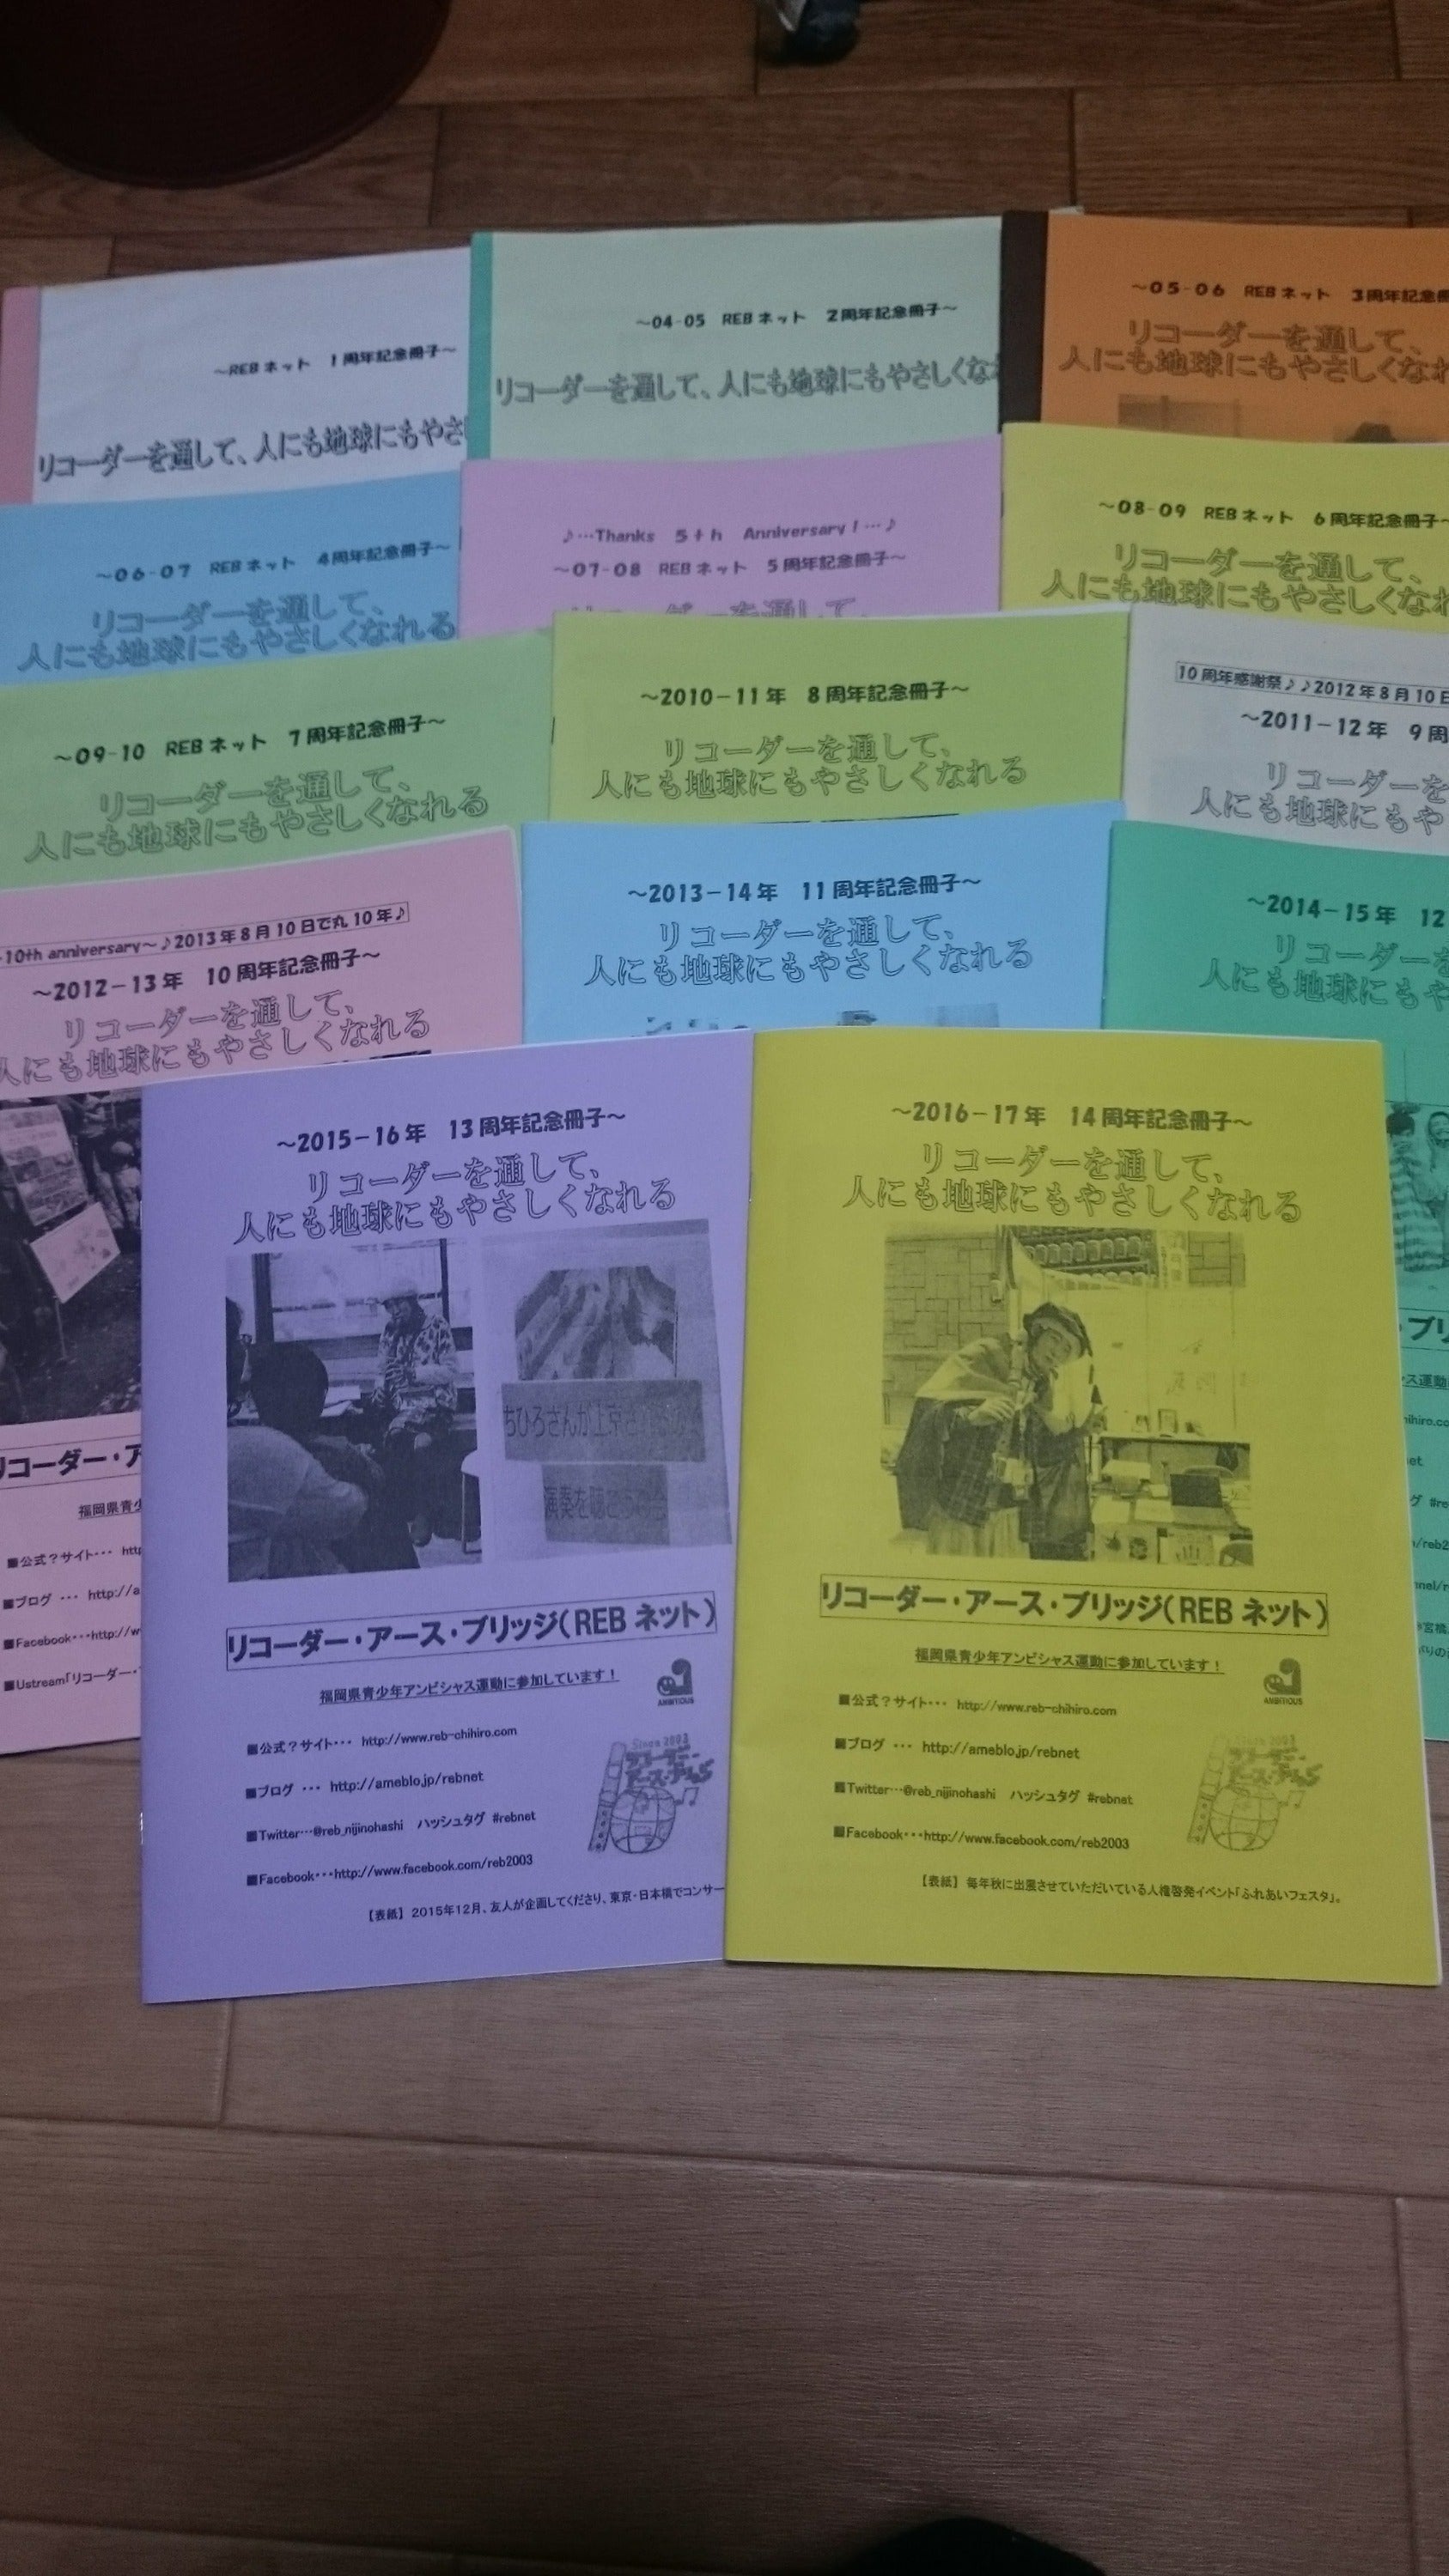 ～REBネット 1周年記念冊子～
リコーダーを通して、人にも地球にもやさ
～04-05 REBネット 2周年記念冊子～
リコーダーを通して、人にも地球にもやさしくな
～05-06 REBネット 3周年記念冊
リコーダーを通して、
人にも地球にもやさしくなれ
～06-07 REBネット 4周年記念冊子～
リコーダーを通して、
人にも地球にもやさしくなれる
♪…Thanks 5th Anniversary!…♪
～07-08 REBネット 5周年記念冊子～
リコーダーを通して、
～08-09 REBネット 6周年記念冊子～
リコーダーを通して、
人にも地球にもやさしくなれ
～09-10 REBネット 7周年記念冊子～
リコーダーを通して、
人にも地球にもやさしくなれる
～2010-11年 8周年記念冊子～
リコーダーを通して、
人にも地球にもやさしくなれる
10周年感謝祭♪♪2012年8月10日
～2011-12年 9周
リコーダーを
人にも地球にもや
10th anniversary～♪2013年8月10日で丸10年♪
～2012-13年 10周年記念冊子～
リコーダーを通して、
人にも地球にもやさしくなれる
リコーダー・ア
福岡県青少
■公式？サイト… http
■ブログ … http://a
■Facebook…http://w
■Ustream「リコーダー・
～2013-14年 11周年記念冊子～
リコーダーを通して、
人にも地球にもやさしくなれる
～2014-15年 12
リコーダーを
人にも地球にもや
・ブリ
ス運動
hihiro.co
et
グ #re
/reb2
nnel/r
宮橋
がりの
～2015-16年 13周年記念冊子～
リコーダーを通して、
人にも地球にもやさしくなれる
ちひろさんが上京
演奏を聴こうの会
リコーダー・アース・ブリッジ（REBネット）
福岡県青少年アンビシャス運動に参加しています！
AMBITIOUS
■公式？サイト… http://www.reb-chihiro.com
■ブログ … http://ameblo.jp/rebnet
■Twitter…@reb_nijinohashi ハッシュタグ #rebnet
■Facebook…http://www.facebook.com/reb2003
Since 2003
リコーダー・
アース・ブリッジ
【表紙】2015年12月、友人が企画してくださり、東京・日本橋でコンサー
～2016-17年 14周年記念冊子～
リコーダーを通して、
人にも地球にもやさしくなれる
リコーダー・アース・ブリッジ（REBネット）
福岡県青少年アンビシャス運動に参加しています！
AMBITIOUS
■公式？サイト… http://www.reb-chihiro.com
■ブログ … http://ameblo.jp/rebnet
■Twitter…@reb_nijinohashi ハッシュタグ #rebnet
■Facebook…http://www.facebook.com/reb2003
Since 2003
リコーダー・
アース・ブリッジ
【表紙】毎年秋に出展させていただいている人権啓発イベント「ふれあいフェスタ」。